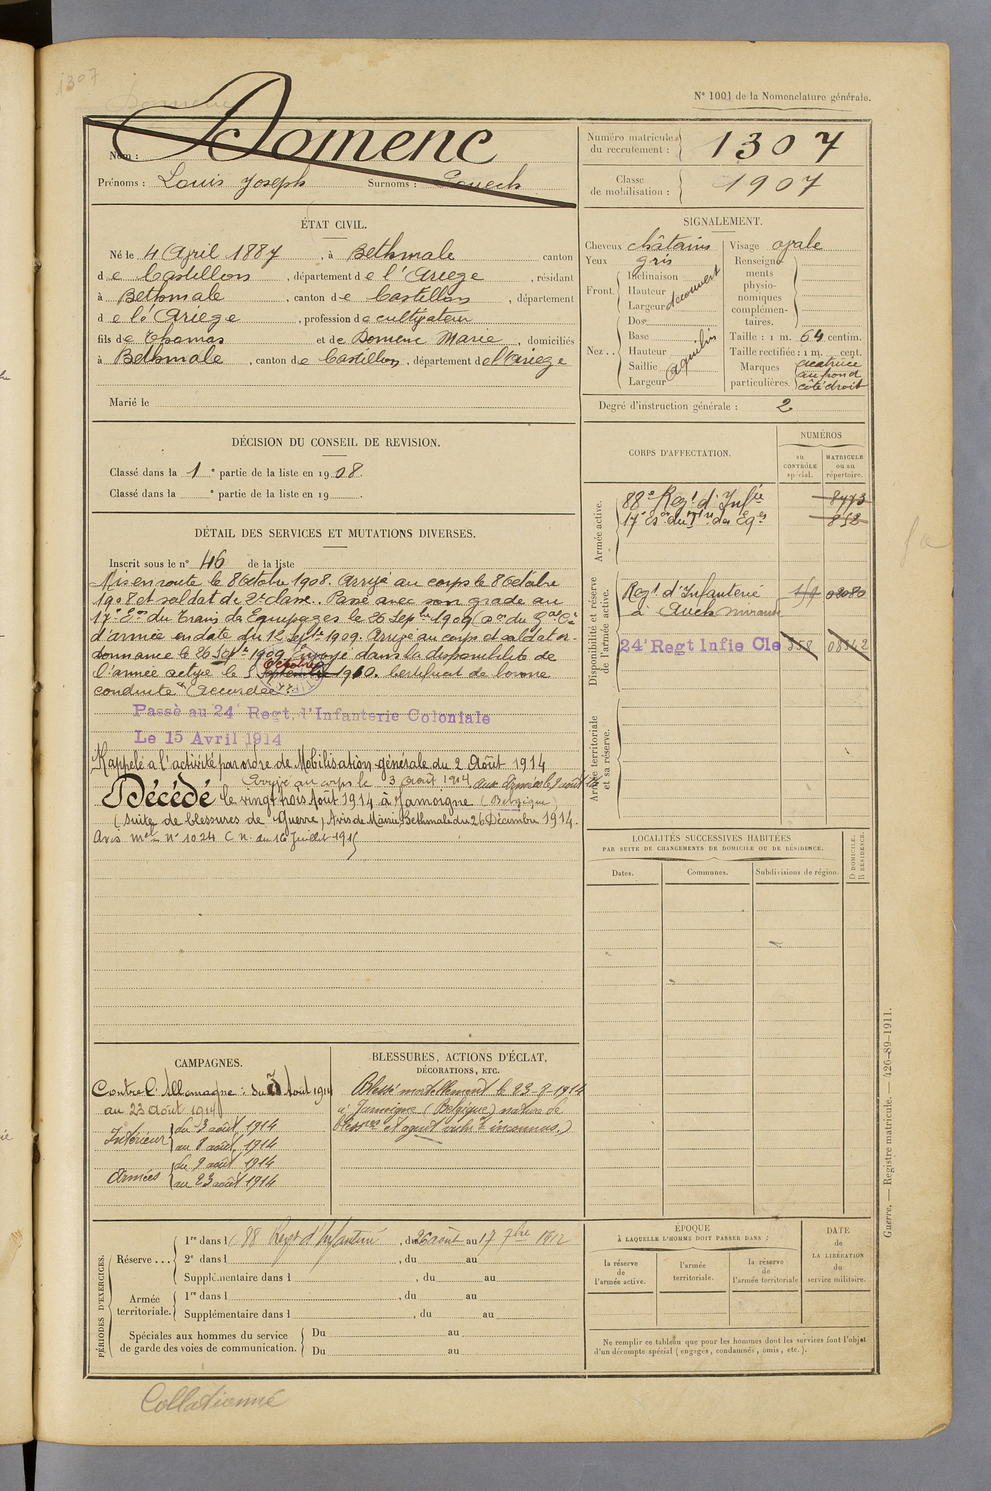 1307
N° 1001 de la Nomenclature générale.
Nom : Domenc
Prénoms : Louis Joseph Surnoms : Souech
Numéro matricule du recrutement : 1307
Classe de mobilisation : 1907
ÉTAT CIVIL.
Né le 4 April 1887, à Bethmale canton
de Castillon, département de l'Ariège, résidant
à Bethmale, canton de Castillon, département
de l'Ariège, profession de cultivateur
fils de Thomas et de Domenc Marie, domiciliés
à Bethmale, canton de Castillon, département de l'Ariège
Marié le
SIGNALEMENT.
Cheveux châtains
Yeux gris
Front. Inclinaison
Hauteur
Largeur découvert
Nez .. Dos
Base
Hauteur
Saillie
Largeur aquilin
Visage ovale
Renseignements physionomiques complémentaires.
Taille : 1 m. 64 centim.
Taille rectifiée : 1 m. cent.
Marques particulières. cicatrice au front côté droit
Degré d'instruction générale : 2
DÉCISION DU CONSEIL DE REVISION.
Classé dans la 1e partie de la liste en 1908.
Classé dans la e partie de la liste en 19 .
DÉTAIL DES SERVICES ET MUTATIONS DIVERSES.
Inscrit sous le n° 46 de la liste
Mis en route le 8 Octobre 1908. Arrivé au corps le 8 Octobre
1908 et soldat de 2e classe. Passé avec son grade au
17e Eon du Train des Equipages le 26 Septbre 1909 (on du Gal Ct
d'armée en date du 12 Septbre 1909. Arrivé au corps et soldat or-
donnance le 26 Septbre 1909. Envoyé dans la disponibilité de
l'armée active le 3 septembre octobre 1910. Certificat de bonne
conduite "Accordée".
Passé au 24e Regt. d'Infanterie Coloniale
Le 15 Avril 1914
Rappelé à l'activité par ordre de Mobilisation générale du 2 Août 1914
Arrivé au corps le 3 août 1914 aux Armées le 9 août
Décédé le vingt trois Août 1914 à Jamoigne (Belgique)
(suite de blessures de Guerre) Avis de Mairie Bethmale du 26 Décembre 1914.
Avis mel N° 1024 C N. du 16 Juillet 1915
CORPS D'AFFECTATION.
NUMÉROS
au CONTRÔLE spécial.
MATRICULE ou au répertoire.
Armée active.
88e Regt d'Infie 8473
17e Eon du Train des Eqes 852
Disponibilité et réserve de l'armée active.
Regt d'Infanterie
à Auch Mirande
24e Regt Infie Cle 358
Armée territoriale et sa réserve.
LOCALITÉS SUCCESSIVES HABITÉES
PAR SUITE DE CHANGEMENTS DE DOMICILE OU DE RÉSIDENCE.
Dates. Communes. Subdivisions de région. D DOMICILE. R RÉSIDENCE.
CAMPAGNES.
Contre l'Allemagne : du 3 Août 1914
au 23 août 1914
Intérieur du 3 août 1914
au 8 août 1914
Armées du 9 août 1914
au 23 août 1914
BLESSURES, ACTIONS D'ÉCLAT,
DÉCORATIONS, ETC.
Blessé mortellement le 23-8-1914
à Jamoigne (Belgique) nature de
blessures et agent vulnt inconnus.)
PÉRIODES D'EXERCICES.
Réserve ... 1re dans l 88 Regt d'Infanterie, du 26 août au 17 7bre 1912
2e dans l , du au
Supplémentaire dans l , du au
Armée territoriale. 1re dans l , du au
Supplémentaire dans l , du au
Spéciales aux hommes du service de garde des voies de communication. Du au
Du au
ÉPOQUE
À LAQUELLE L'HOMME DOIT PASSER DANS :
la réserve de l'armée active.
l'armée territoriale.
la réserve de l'armée territoriale
DATE de LA LIBÉRATION du service militaire.
Ne remplir ce tableau que pour les hommes dont les services font l'objet
d'un décompte spécial (engagés, condamnés, omis, etc.).
Guerre. — Registre matricule. — 426-89-1911.
Collationné